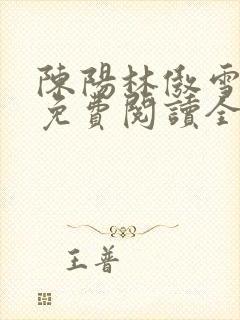 陳陽林傲雪
免費閱讀全
王普